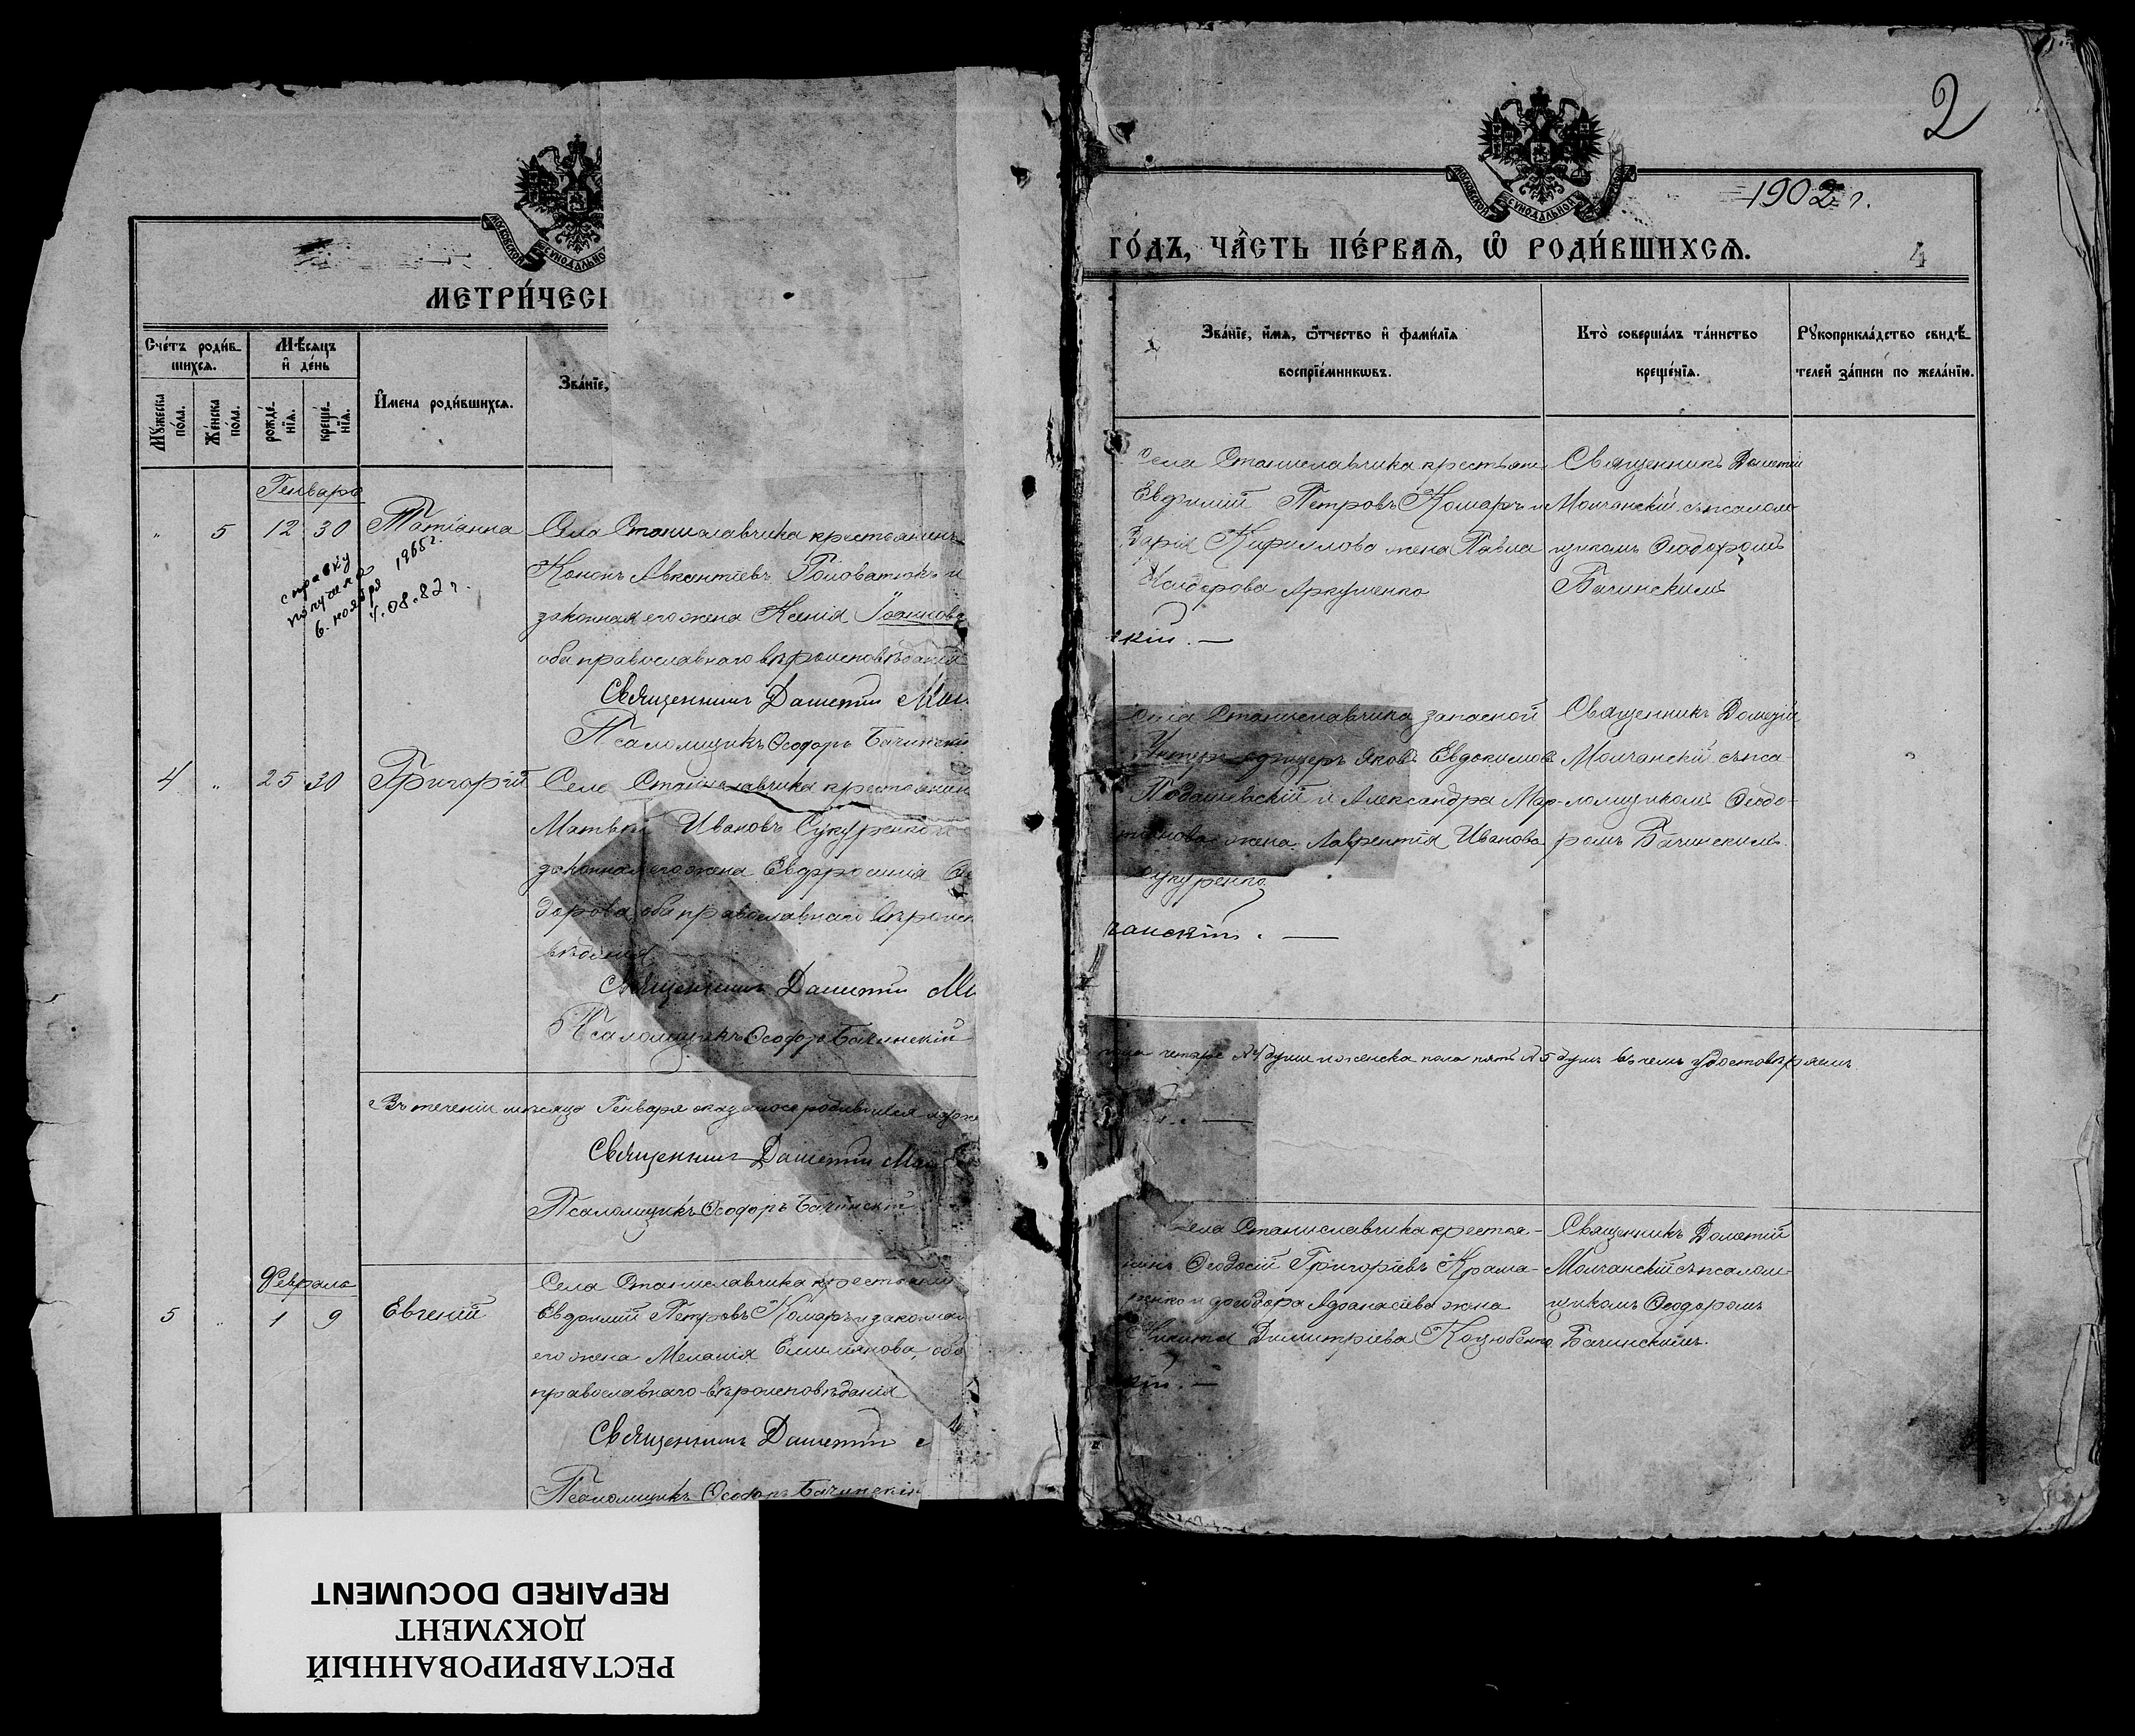 МЕТРИ́ЧЕС
Сче́тъ роди́в
шихсѧ.
Мѣ́сѧцъ
и҆ де́нь
Мꙋ́жеска по́ла.
Же́нска по́ла.
рожде́нїѧ.
креще́нїѧ.
И҆мена роди́вшихсѧ.
Зва́нїе,
Генварь
" 5 12 30 Татіанна
Села Станиславчика крестьянинъ
Кононъ Авксентіевъ Головатюкъ и
законная его жена Ксенія Іоаннова
оба православнаго вѣроисповѣданія
Священникъ Дометій
Псаломщикъ Ѳеодоръ Бачинскій
справку
получено
6. ноября 1965 г.
4.08.82 г.
4 " 25 30 Григорій
Села Станиславчика крестьянинъ
Матвѣй Ивановъ Сукуренко и
законная его жена Евфросинія Ѳе
дорова, оба православнаго вѣроисп
вѣданія
Священникъ Дометій
Псаломщикъ Ѳеодоръ Бачинскій
Въ теченіи мѣсяца Генваря оказалось родившихся муж
Священникъ Дометій Мол
Псаломщикъ Ѳеодоръ Бачинскій
Февраль
5 " 1 9 Евгений
Села Станиславчика крестьянинъ
Евфимій Петровъ Комаръ и законная
его жена Меланія Емиліянова, оба
православнаго вѣроисповѣданія
Священникъ Дометій
Псаломщикъ Ѳеодоръ Бачинскій
2
1902 г.
МОСКОВСКОЙ СѴНОДАЛЬНОЙ
ГО́ДЪ, ЧА́СТЬ ПЕ́РВАѦ, Ѡ҆ РОДИ́ВШИХСѦ.
4
Зва́нїе, и҆́мѧ, ѻ҆́тчество и҆ фами́лїѧ
воспрїе́мникѡвъ.
Кто̀ соверша́лъ та́инство
креще́нїѧ.
Рꙋкоприкла́дство свидѣ́
телей за́писи по жела́нїю.
Села Станиславчика крестьяне
Евфимій Петровъ Комаръ и
Кириллова жена Павла
Аркушенко
скій. —
Священникъ Дометій
Молчанскій съ псалом
щикомъ Ѳеодоромъ
Бачинскимъ
Села Станиславчика запасной
Унтеръ-офицеръ Яковъ Евдокимовъ
Подашевскій и Александра Мар
тинова жена Лаврентія Иванова
Сукуренко
чанскій. —
Священникъ Дометій
Молчанскій съ пса
ломщикомъ Ѳеодо-
ромъ Бачинскимъ
пола четыре №4 души и женска пола пять №5 душъ въ чемъ удостовѣряемъ
Села Станиславчика крестья-
нинъ Ѳеодосій Григоріевъ Крама-
ренко и Ѳеодора Афанасіева жена
Никиты Димитріева Коцюбенко
скій. —
Священникъ Дометій
Молчанскій съ псалом
щикомъ Ѳеодоромъ
Бачинскимъ.
РЕСТАВРИРОВАННЫЙ
ДОКУМЕНТ
REPAIRED DOCUMENT